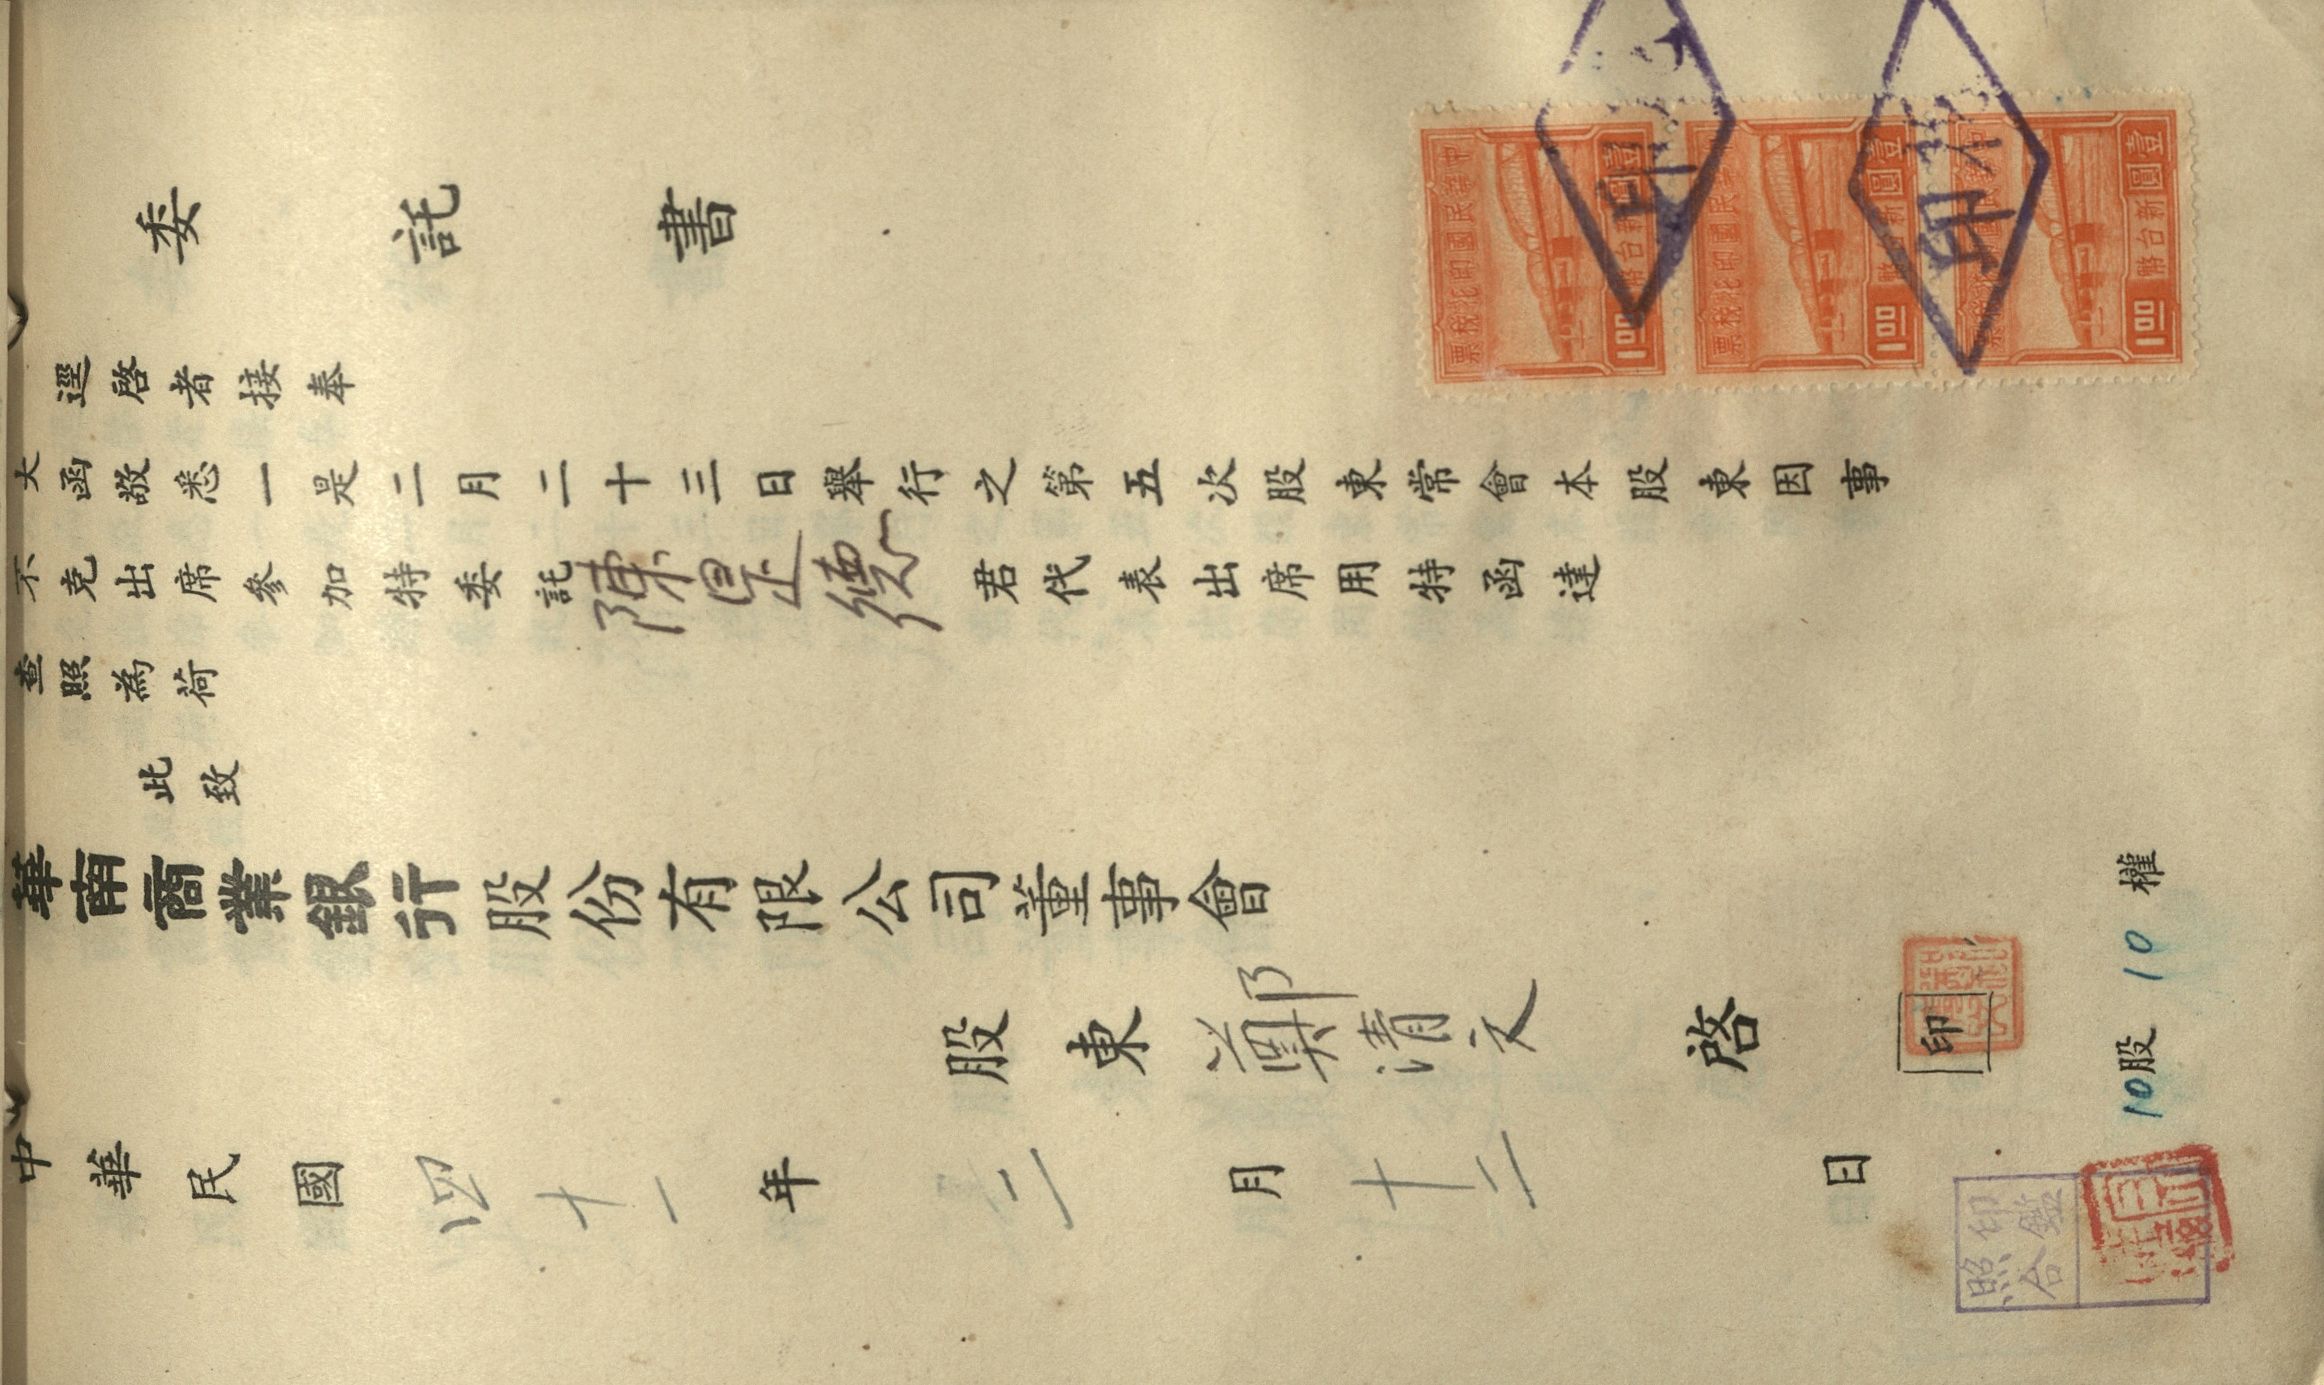 委託書
逕啓者接奉
大函敬悉一是二月二十三日舉行之第五次股東常會本股東因事
不克出席參加特委託陳是德君代表出席用特函達
查照為荷
此致
華南商業銀行股份有限公司董事會
股東 鄭清文 啓 印
中華民國四十一年二月十二日
10股 10權
印鑑照合
中華民國印花稅票
壹圓新台幣
1.00
中華民國印花稅票
壹圓新台幣
1.00
壹圓新台幣
1.00